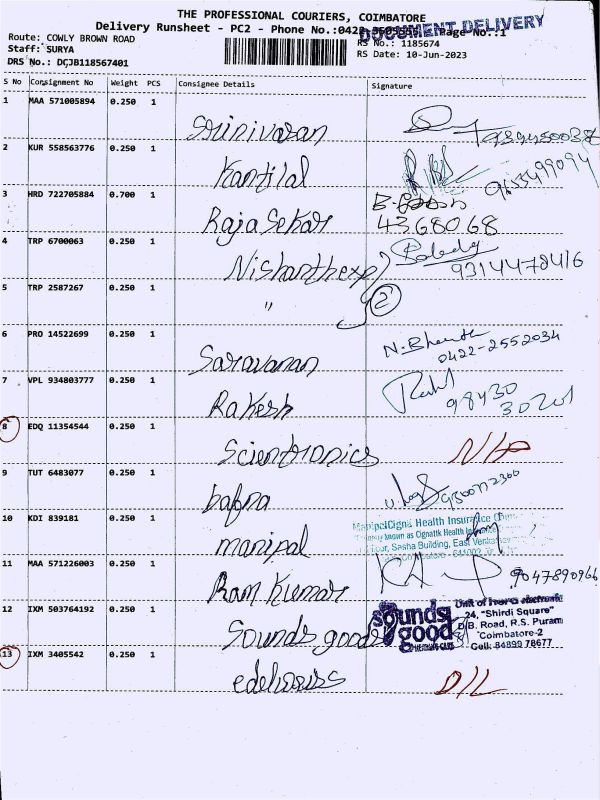 THE PROFESSIONAL COURIERS, COIMBATORE
DOCUMENT DELIVERY
Delivery Runsheet - PC2 - Phone No.:0422 Page No.:1
Route: COWLY BROWN ROAD
RS No.: 1185674
Staff: SURYA
RS Date: 10-Jun-2023
DRS No.: DCJB118567401
S No Consignment No Weight PCS Consignee Details Signature
1 MAA 571005894 0.250 1
Srinivasan
2 KUR 558563776 0.250 1
Kantilal 9655499094
3 HRD 722705884 0.700 1
Raja Sekar 4368068
4 TRP 6700063 0.250 1
Nishanth exp 9314478416
5 TRP 2587267 0.250 1
" 2
6 PRO 14522699 0.250 1
Saravanan N. Bharath 0422-2552034
7 VPL 934803777 0.250 1
Rakesh 98430
8 EDQ 11354544 0.250 1
Scientronics
9 TUT 6483077 0.250 1
bafna
10 KDI 839181 0.250 1
manipal
ManipalCigna Health Insurance
known as Cignattk Health
Sasha Building, East
11 MAA 571226003 0.250 1
Ram Kumar 9047890966
12 IXM 503764192 0.250 1
Sounds good
sounds good
Unit of
24, "Shirdi Square"
D.B. Road, R.S. Puram
Coimbatore-2
Cell: 84899 78677
13 IXM 3405542 0.250 1
edelweiss D/L